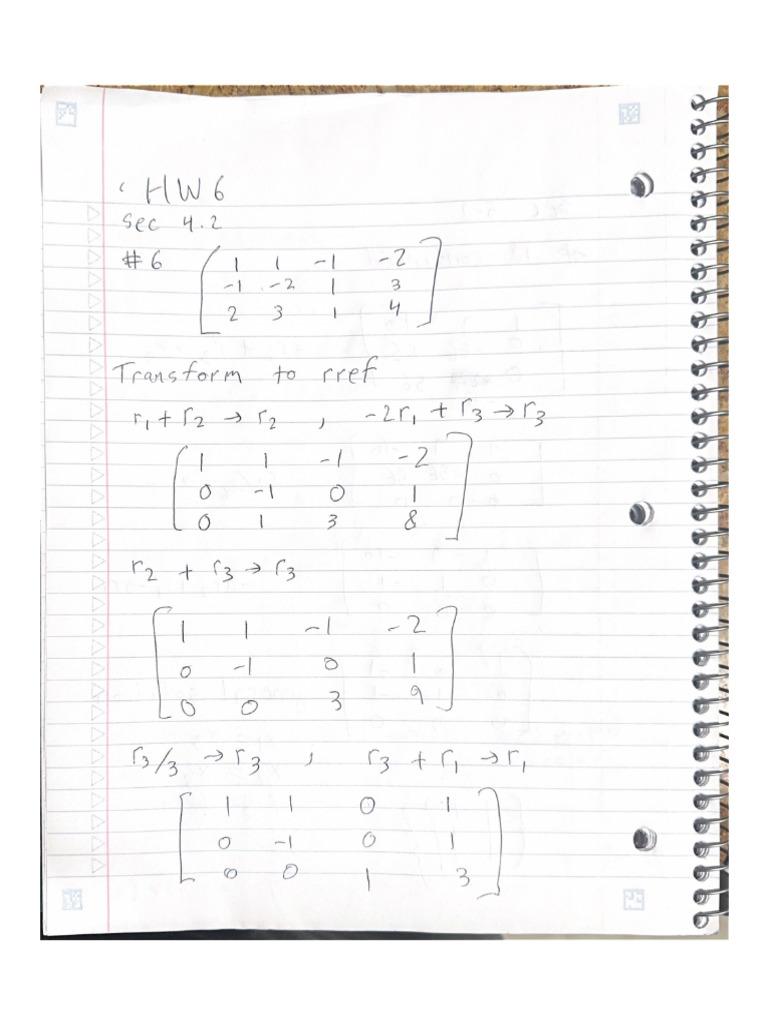 HW6
Sec 4.2
#6
1 1 -1 -2
-1 -2 1 3
2 3 1 4
Transform to rref
r₁ + r₂ → r₂ , -2r₁ + r₃ → r₃
1 1 -1 -2
0 -1 0 1
0 1 3 8
r₂ + r₃ → r₃
1 1 -1 -2
0 -1 0 1
0 0 3 9
r₃/3 → r₃ , r₃ + r₁ → r₁
1 1 0 1
0 -1 0 1
0 0 1 3